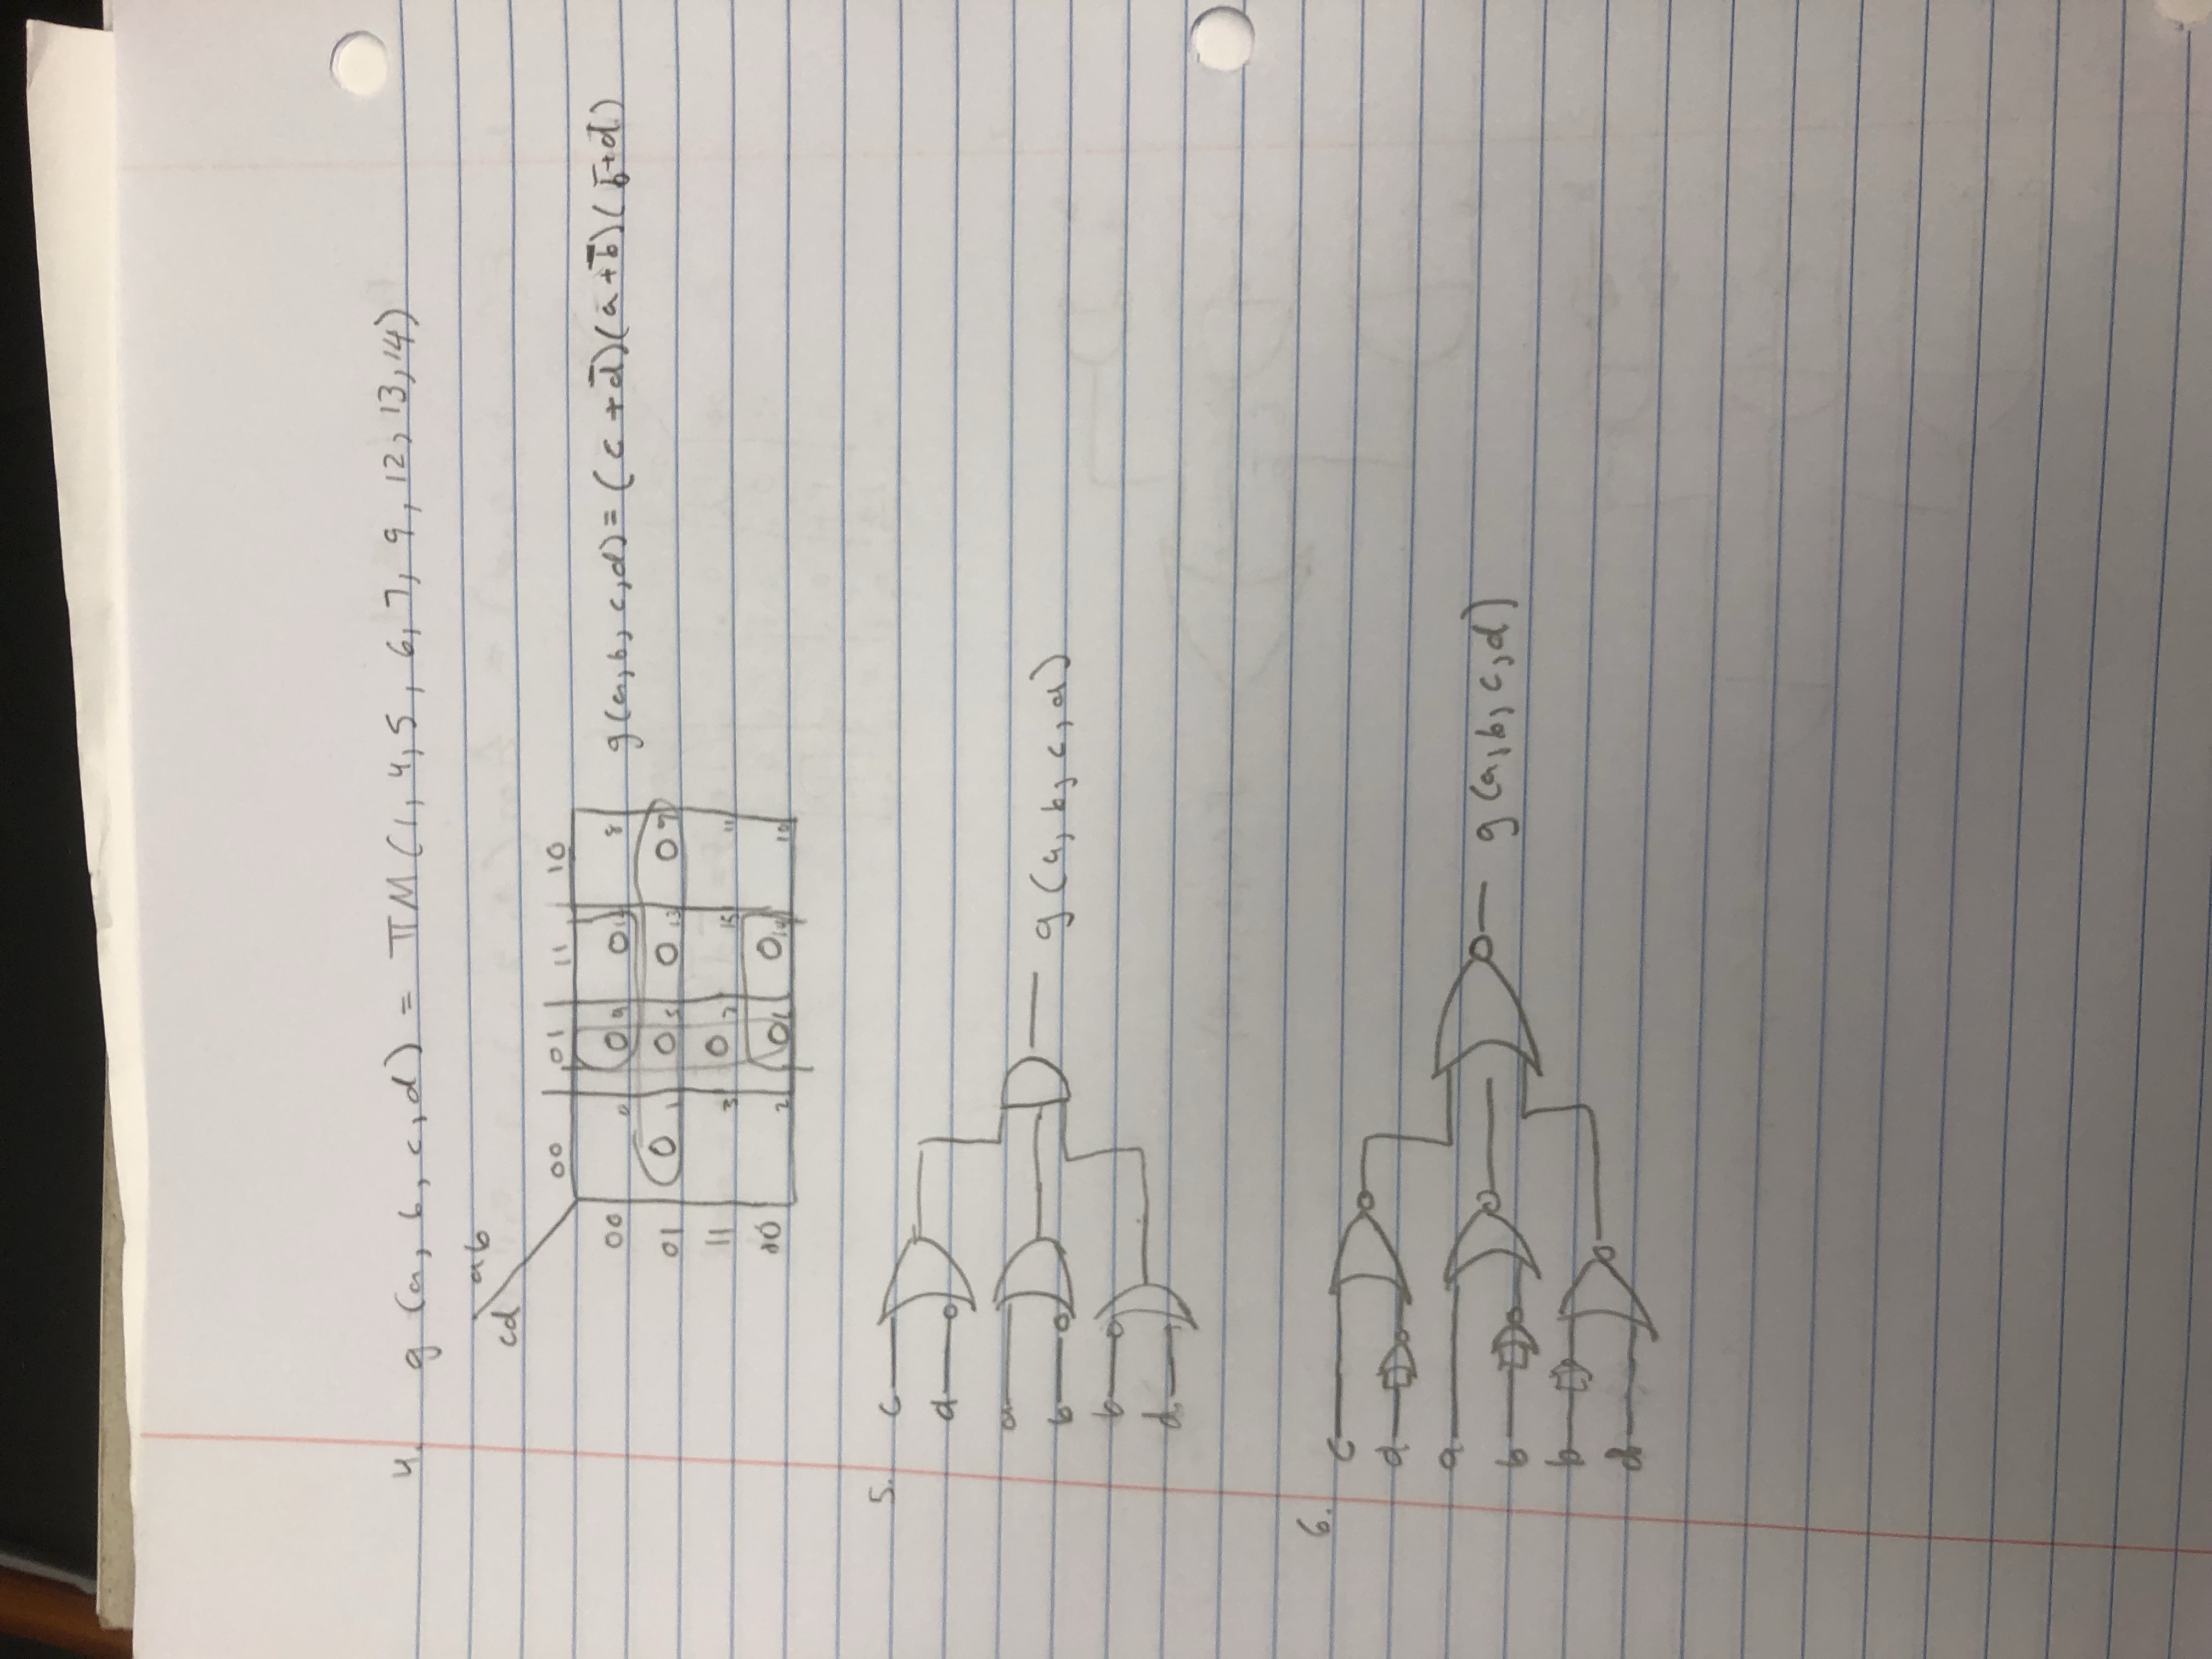 4. g (a, b, c, d) = πM (1, 4, 5, 6, 7, 9, 12, 13, 14)
ab
cd
00 01 11 10
00 0 0 4 0 12 8
01 0 1 0 5 0 13 0 9
11 3 0 7 15 11
10 2 0 6 0 14 10
g(a, b, c, d) = (c + d̅)(a + b̅)(b̅ + d)
5. c
d
a
b
g (a, b, c, d)
b
d
6. c
d
a
b
g (a, b, c, d)
b
d